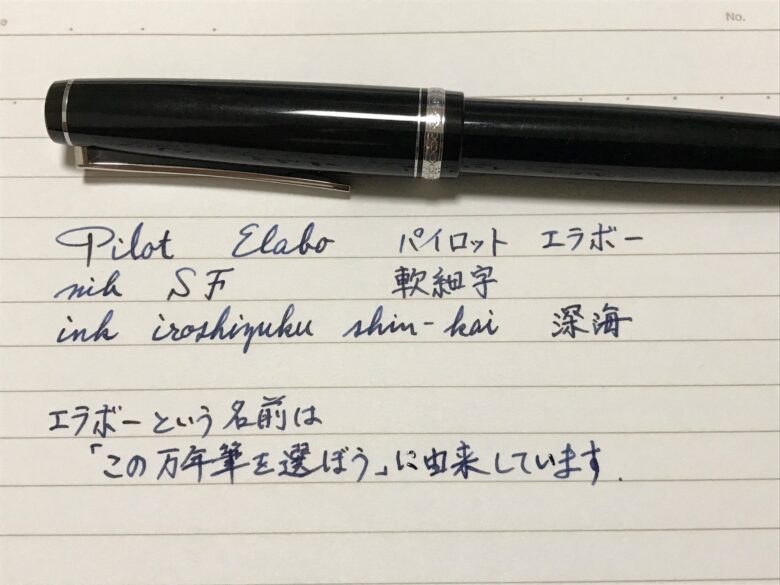 No.
Pilot Elabo パイロット エラボー
nib SF 軟細字
ink iroshizuku shin-kai 深海
エラボーという名前は
「この万年筆を選ぼう」に由来しています.